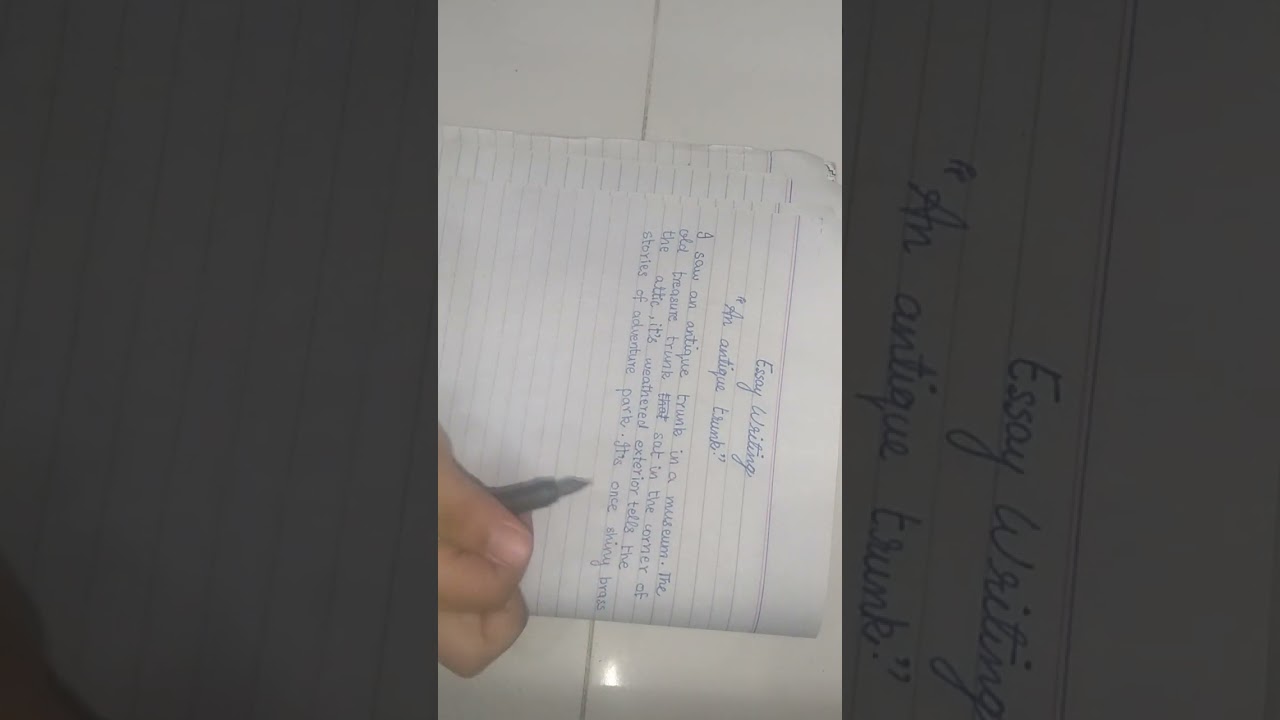 Essay Writing
"An antique trunk."
I saw an antique trunk in a museum. The
old treasure trunk that sat in the corner of
the attic, it's weathered exterior tells the
stories of adventure park. It's once shiny brass
Essay Writing
"An antique trunk."